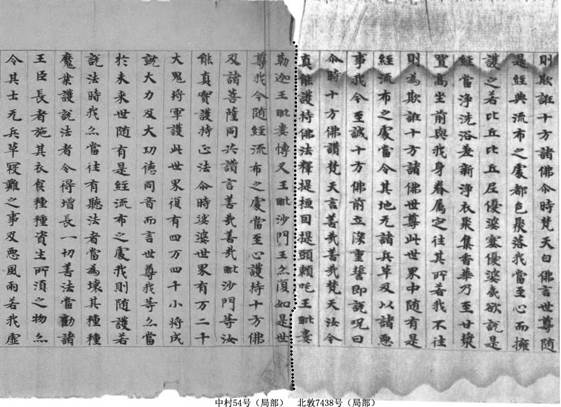 則欺誑十方諸佛尒時梵天白佛言世尊隨
是經典流布之處都邑聚落我當至心而擁
護之若比丘比丘尼優婆塞優婆夷欲說是
經當淨洗浴著新淨衣聚集香華乃至甘漿
置高坐前與我身眷属之往其所若我不往
則為欺誑十方諸佛世尊此世界中隨有是
經流布之處當令其地无諸兵革及以諸惡
事我今至誠十方佛前立深重誓即說呪曰
尒時十方佛讚梵天言善哉善哉梵天法令
真能護持佛法釋提桓因提頭頼吒王毗婁
勒迦王毗婁博叉王毗沙門王亦復如是世
尊我今隨經流布之處當至心護持十方佛
及諸菩薩同共讚言善哉善哉毗沙門等汝
能真實護持正法尒時娑婆世界有万二千
大鬼將軍護此世界復有四万四千小將成
就大力及大功德同音而言世尊我等亦當
於未来世随有是經流布之處我則随護若
說法時我亦當往有聽法者當為壞其種種
魔業護說法者令得增長一切善法當勸諸
王臣長者施其衣食種種資生所須之物亦
令其土无兵革難之事及惡風雨若我虛
中村54号（局部）
北敦7438号（局部）